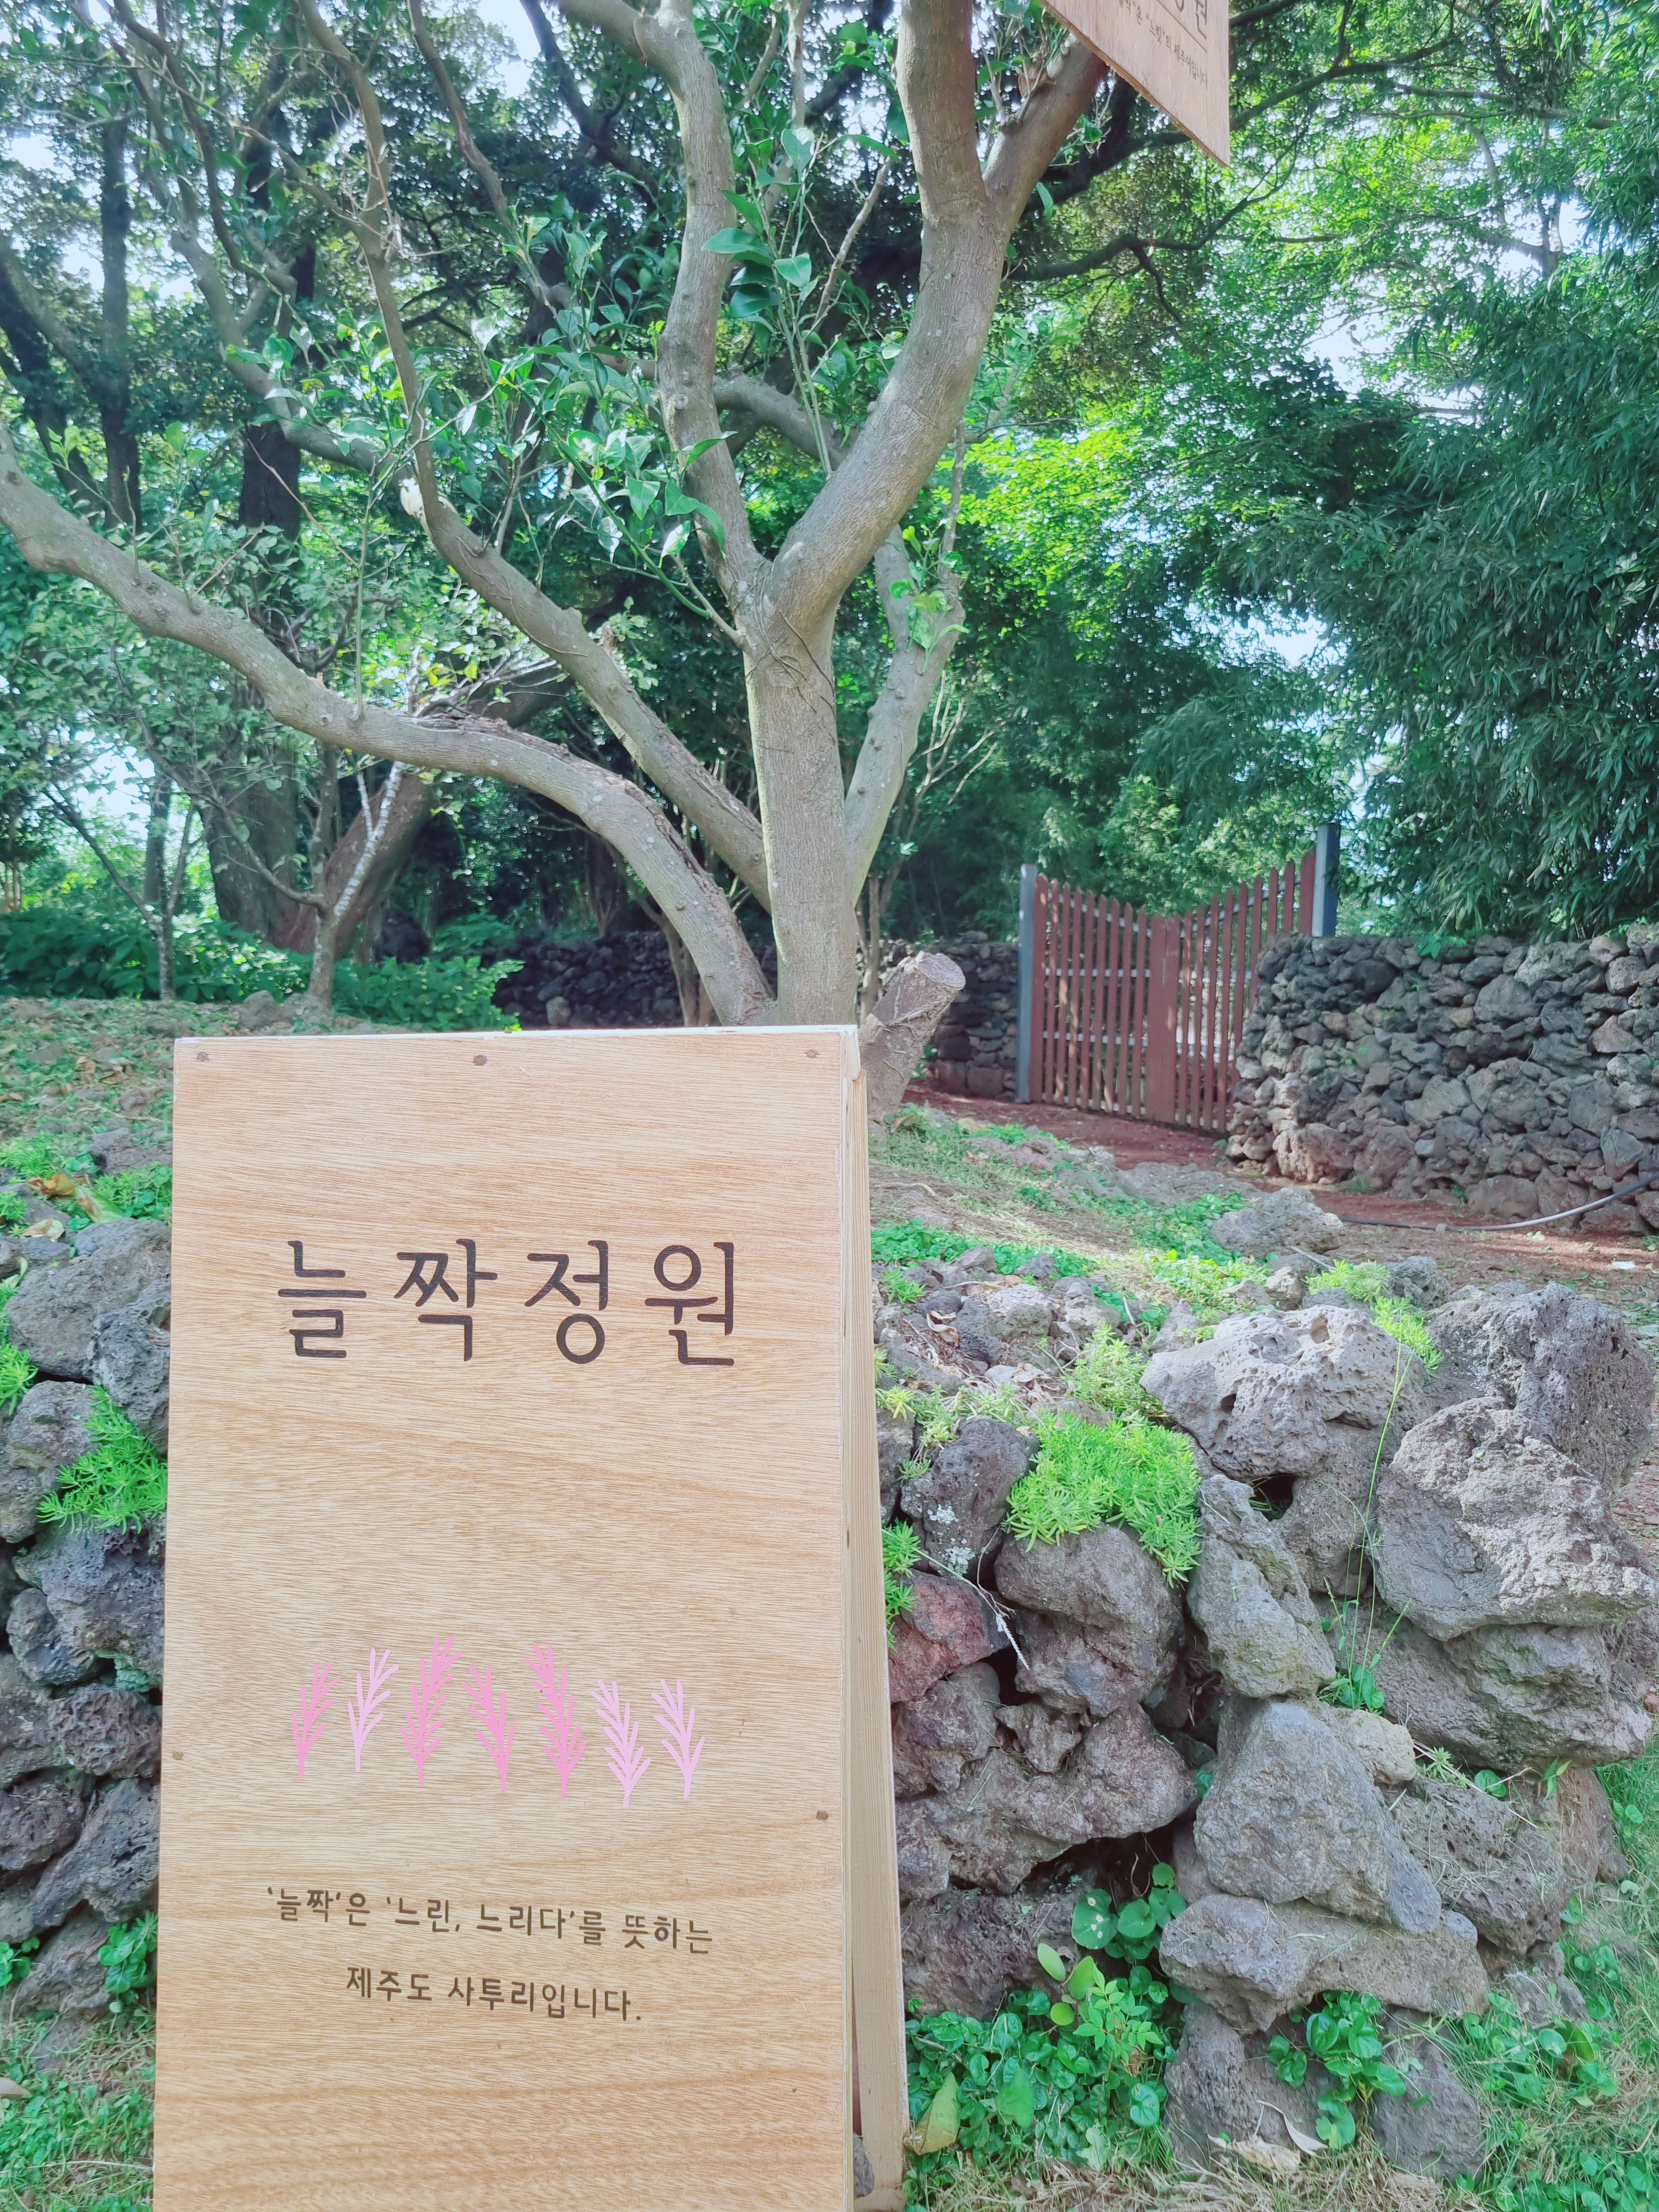 늘짝정원
'늘짝'은 '느린, 느리다'를 뜻하는
제주도 사투리입니다.